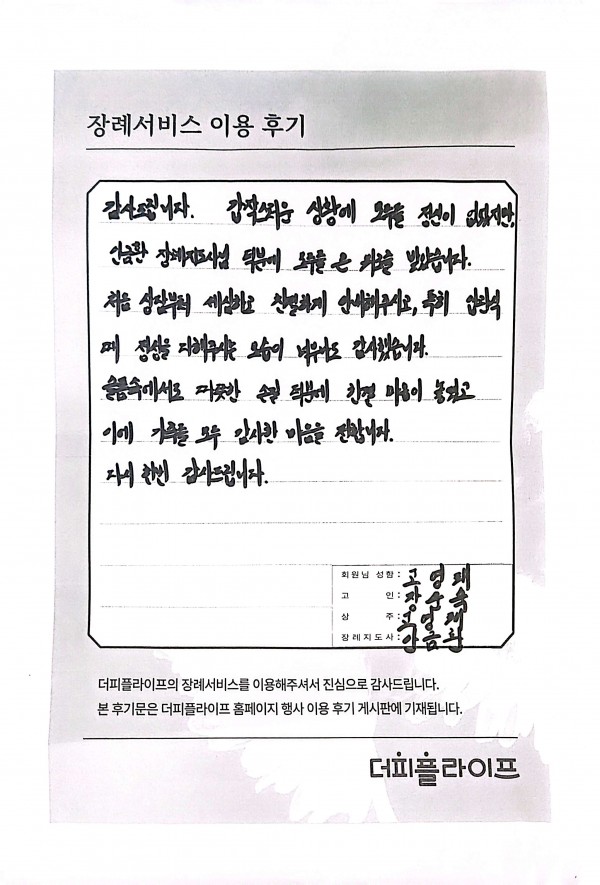 장례서비스 이용 후기
감사드립니다. 갑작스러운 상황에 모두들 정신이 없었지만,
안금환 장례지도사님 덕분에 모두들 큰 위로를 받았습니다.
처음 상담부터 세심하고 친절하게 안내해주시고, 특히 입관식
때 정성을 다해주시는 모습이 너무나도 감사했습니다.
슬픔속에서도 따뜻한 손길 덕분에 한결 마음이 놓였고
이에 가족들 모두 감사한 마음을 전합니다.
다시 한번 감사드립니다.
회원님 성함 : 고영재
고 인 : 장순숙
상 주 : 고영재
장례지도사 : 안금환
더피플라이프의 장례서비스를 이용해주셔서 진심으로 감사드립니다.
본 후기문은 더피플라이프 홈페이지 행사 이용 후기 게시판에 기재됩니다.
더피플라이프